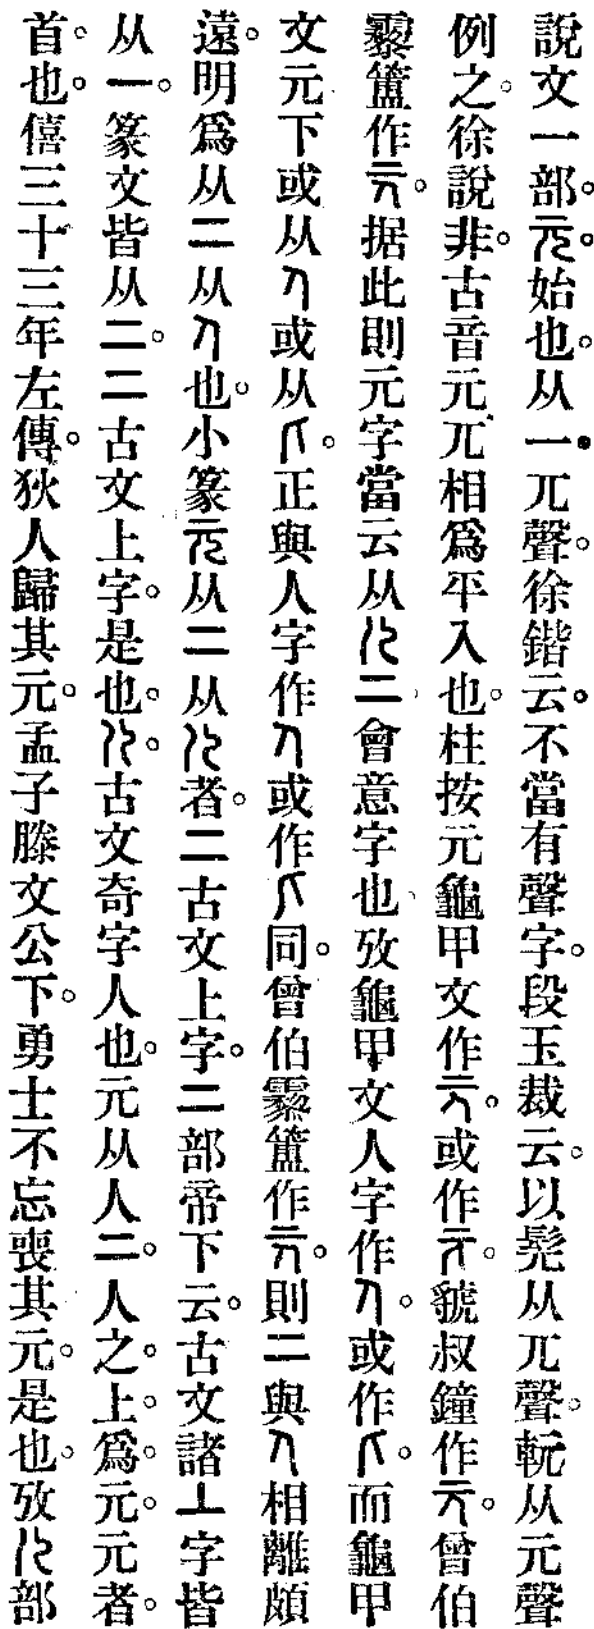 說文一部。元。始也。从一。兀聲。徐鍇云。不當有聲字。段玉裁云。以髡从兀聲。軏从元聲
例之。徐說非。古音元兀相爲平入也。柱按元龜甲文作。或作。虢叔鐘作。曾伯
霥簠作。据此則元字當云从二會意字也攷龜甲文人字作。或作。而龜甲
文元下或从或从。正與人字作或作同。曾伯霥簠作。則二與相離頗
遠。明爲从二从也。小篆元从二从者。二古文上字。二部帝下云。古文諸丄字皆
从一。篆文皆从二。二古文上字。是也。古文奇字人也。元从人二。人之。上。爲。元。元者。
首。也。僖三十三年左傳。狄人歸其元。孟子滕文公下。勇士不忘喪其元。是也。攷部